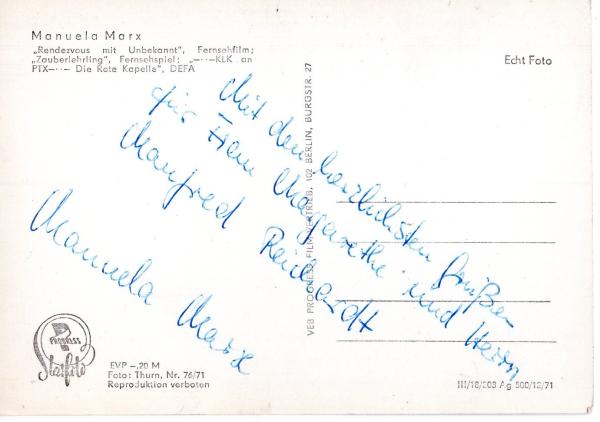 Manuela Marx
„Rendezvous mit Unbekannt", Fernsehfilm;
„Zauberlehrling", Fernsehspiel; „—··—KLK an
PTX—··— Die Rote Kapelle", DEFA
Echt Foto
Mit den herzlichsten Grüßen
für Frau Margarethe und Herrn
Manfred Reichardt
Manuela Marx
VEB PROGRESS FILM-VERTRIEB, 102 BERLIN, BURGSTR. 27
PROGRESS
Starfoto
EVP –,20 M
Foto: Thurn, Nr. 76/71
Reproduktion verboten
III/18/203 Ag 500/12/71